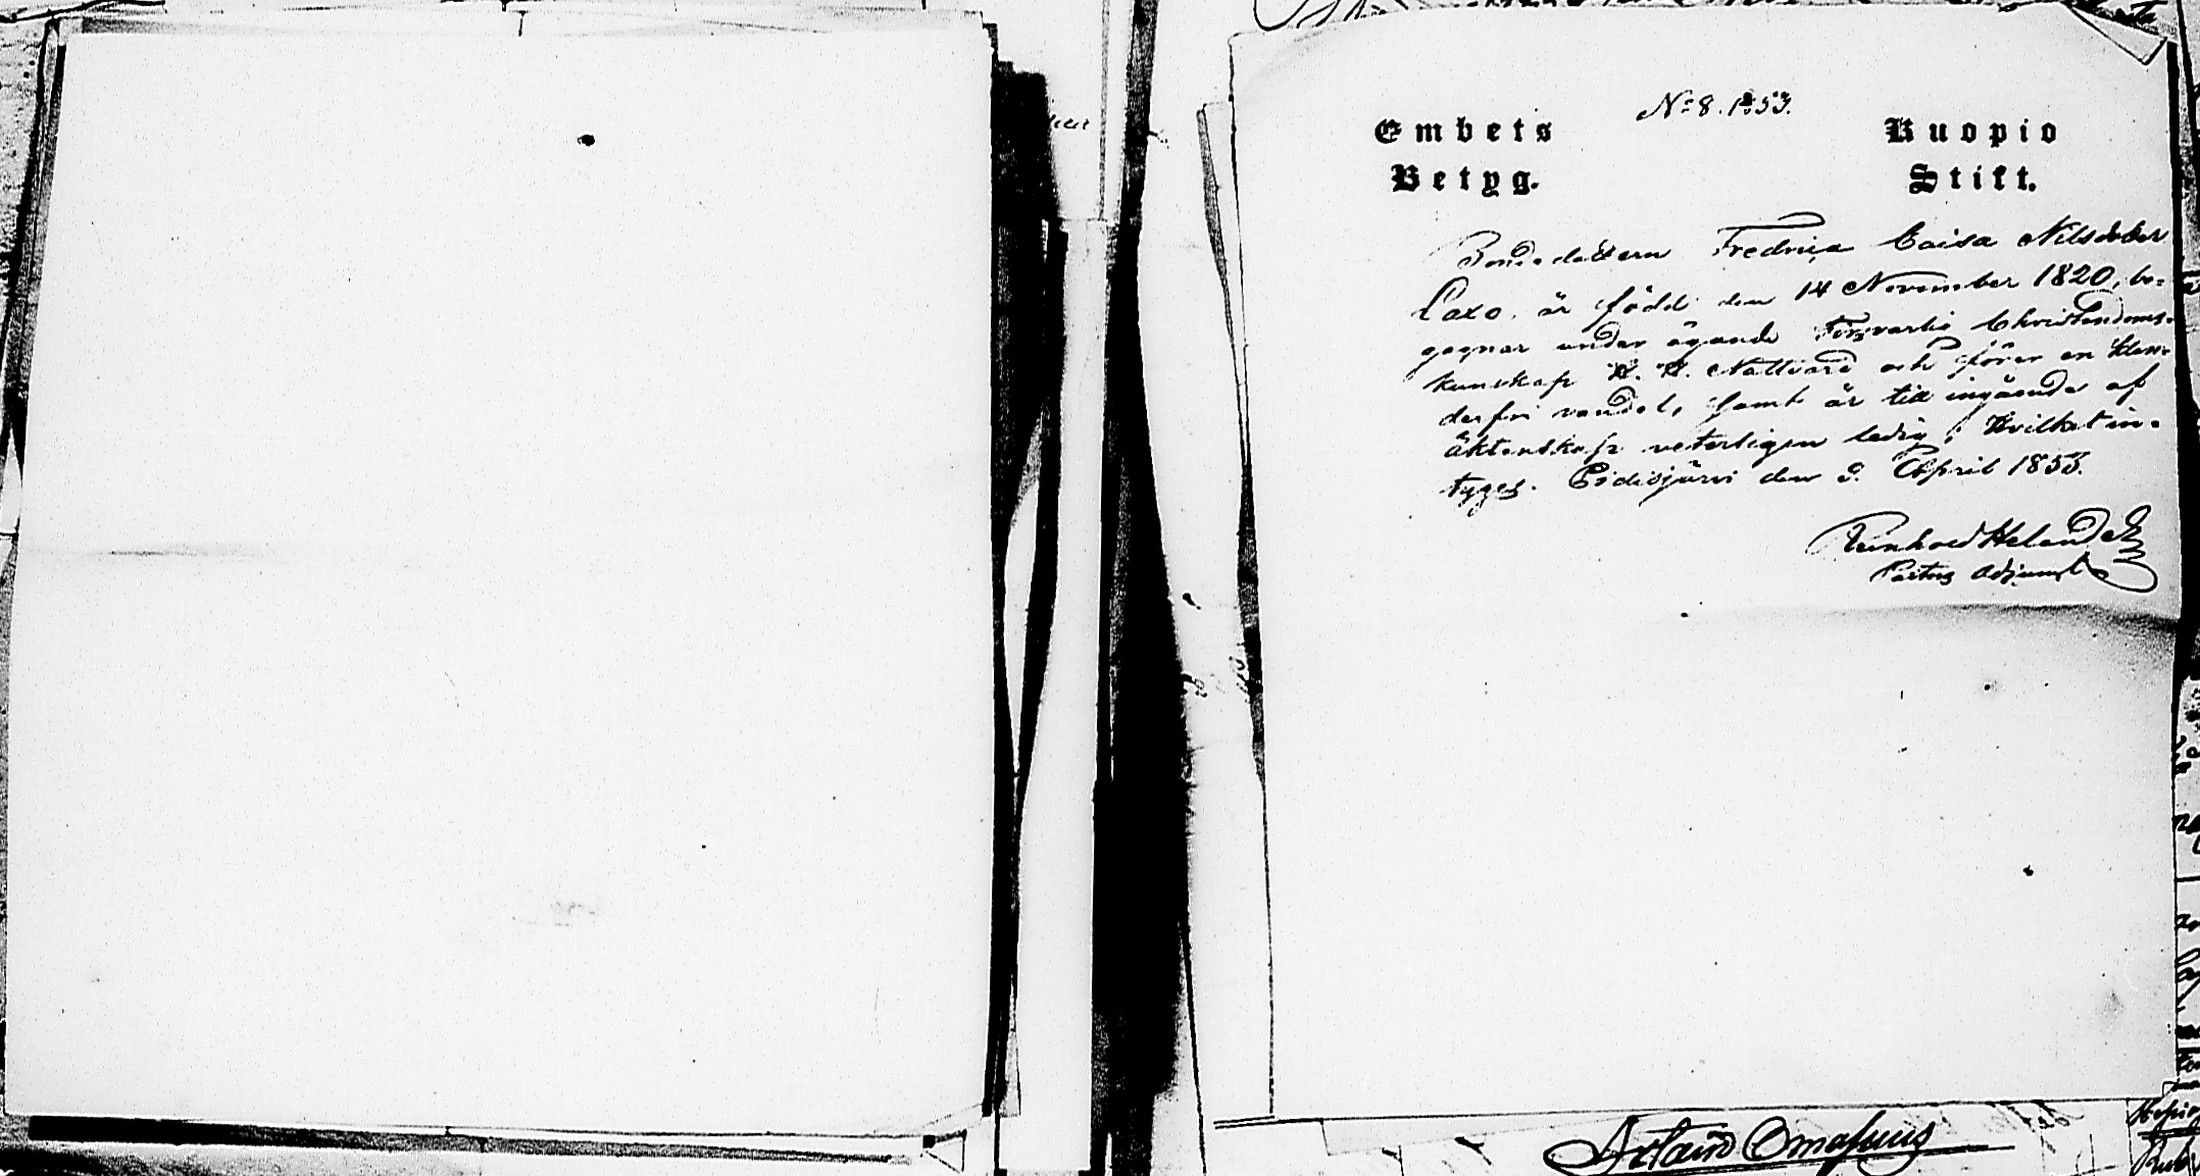 No 8. 1853.
Embets Kuopio
Betyg. Stift.
Bondedottern Fredrica Caisa Nilsdotter
Laxo, är född den 14 November 1820, be-
gagnar under ägande Försvarlig Christendoms-
kunskap H. H. Nattvard och förer en klan-
derfri vandel, samt är till ingående af
äktenskap veterligen ledig; Hvilket in-
tyges. Pidisjärvi den 9. April 1853.
Reinhold Helander
Pastors Adjunct